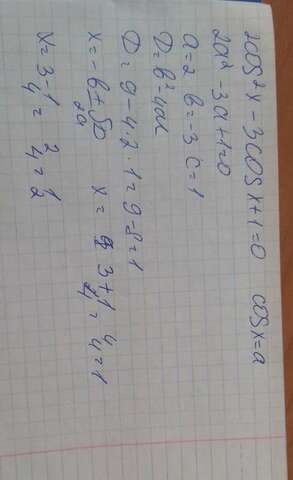 2cos²x - 3cosx + 1 = 0 cosx = a
2a² - 3a + 1 = 0
a = 2 b = -3 c = 1
D = b² - 4ac
D = 9 - 4·2·1 = 9 - 8 = 1
x = -b ± √D / 2a x = 3 + 1 / 4 = 4 / 4 = 1
x = 3 - 1 / 4 = 2 / 4 = 1 / 2